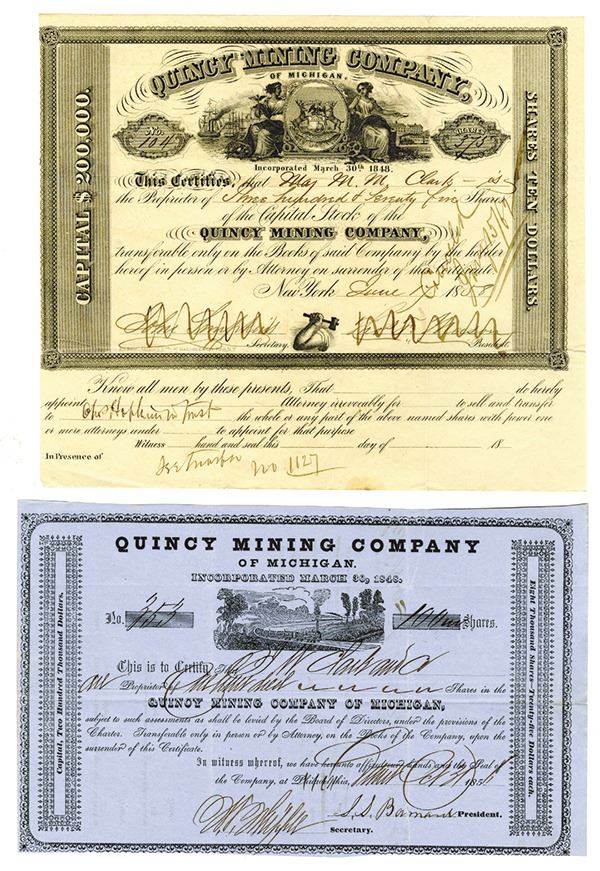 QUINCY MINING COMPANY,
OF MICHIGAN.
No.
SHARES
Incorporated March 30th 1848.
CAPITAL $ 200,000.
SHARES TEN DOLLARS.
This Certifies, that Maj M. M. Clark is
the Proprietor of Three hundred & seventy five Shares
of the Capital Stock of the
QUINCY MINING COMPANY,
transferable only on the Books of said Company by the holder
hereof in person or by Attorney on surrender of this Certificate
New York June 185
Secretary.
President.
Know all men by these presents, That do hereby
appoint Attorney irrevocably for to sell and transfer
to Chs Hopkins in Trust the whole or any part of the above named shares with power one
or more attorneys under to appoint for that purpose
Witness hand and seal this day of 18
In Presence of
See Transfer No 1127
QUINCY MINING COMPANY
OF MICHIGAN.
INCORPORATED MARCH 30, 1848.
No. 353
100 Shares.
Capital, Two Hundred Thousand Dollars.
Eight Thousand Shares-Twenty-five Dollars each.
This is to Certify That
Proprietor Shares in the
QUINCY MINING COMPANY OF MICHIGAN,
subject to such assessments as shall be levied by the Board of Directors, under the provisions of the
Charter. Transferable only in person or by Attorney, on the Books of the Company, upon the
surrender of this Certificate.
In witness whereof, we have hereunto affixed our hands and the Seal of
the Company, at Philadelphia, 185
S. S. Barnard President.
Secretary.